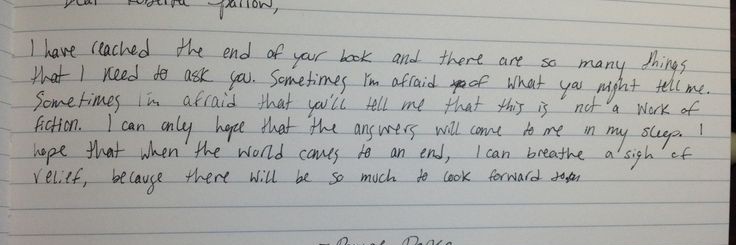 Dear Roberta Sparrow,
I have reached the end of your book and there are so many things
that I need to ask you. Sometimes I'm afraid of what you might tell me.
Sometimes i'm afraid that you'll tell me that this is not a work of
fiction. I can only hope that the answers will come to me in my sleep. I
hope that when the world comes to an end, I can breathe a sigh of
relief, because there will be so much to look forward to